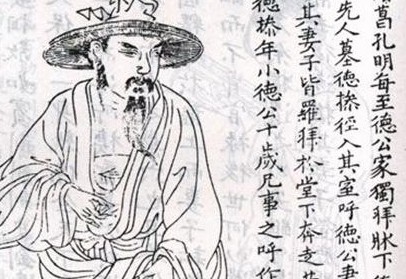 葛孔明每至德公家獨拜牀下
先人墓德操徑入其室呼德公妻
其妻子皆羅拜於堂下奔走
德操年小德公十歲兄事之呼作